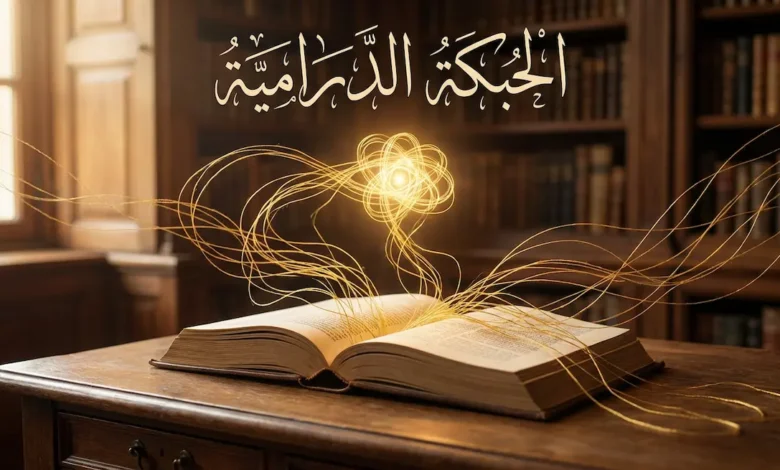 الْحُبْكَةُ الدَّرَامِيَّةُ